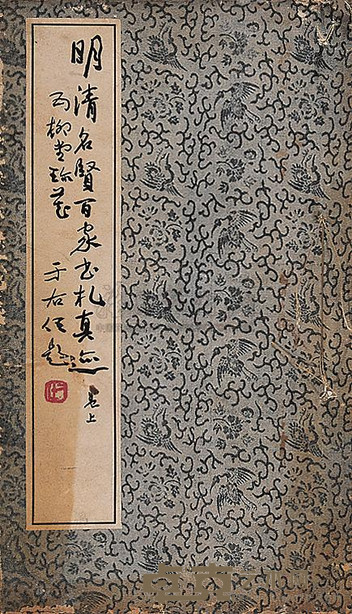 明清名賢百家书札真迹 卷上
柳堂珍藏 于右任题